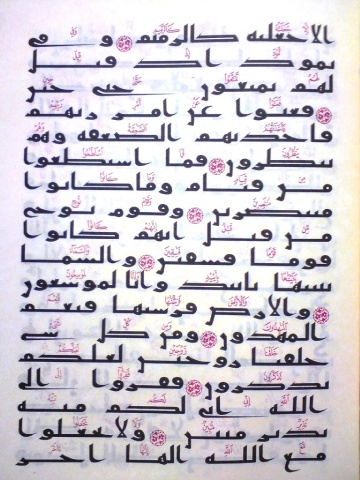 الا جعلته كالرميم ۝ و في
ثمود اذ قيل
لهم تمتعوا حتى حين
۝ فعتوا عن امر ربهم
فاخذتهم الصعقة وهم
ينظرون ۝ فما استطعوا
من قيام وما كانوا
منتصرين ۝ وقوم نوح
من قبل انهم كانوا
قوما فسقين ۝ والسما
بنينها باييد وانا لموسعون
۝ والارض فرشنها فنعم
المهدون ۝ ومن كل شي
خلقنا زوجين لعلكم
تذكرون ۝ ففروا الى
الله اني لكم منه
نذير مبين ۝ ولا تجعلوا
مع الله الها اخر